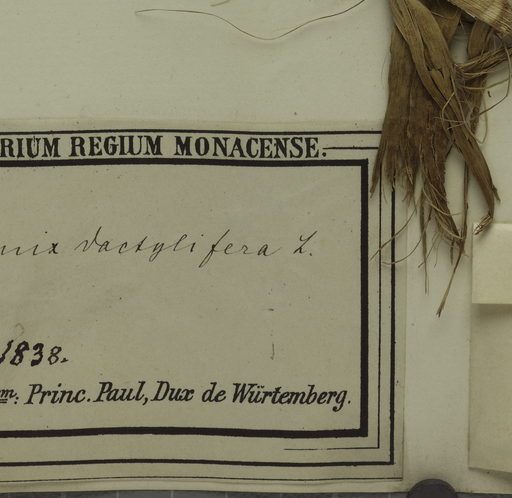 RIUM REGIUM MONACENSE.
nix dactylifera L.
1838.
m: Princ. Paul, Dux de Würtemberg.